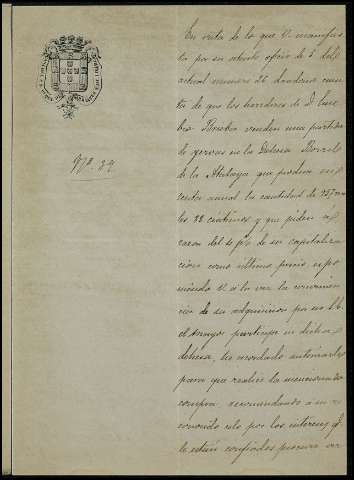 Nº. 34
En vista de lo que V. manifies
ta por su atento oficio de 5 del
actual numero 26 dandome cuen
ta de que los herederos de D. Euse
bio venden una partida
de yervas en la Dehesa
de la Atalaya que produce en
renta anual la cantidad de 157 rea
les 28 centimos y que piden a
razon del 4 p% de su capitaliza
cion como último precio, expo
niendo V. a la vez la convenien
cia de su adquisicion por ser S.E.
el mayor participe en dicha
dehesa, he acordado autorizarle
para que realice la mencionada
compra, recomendando a su re
conocido celo por los intereses q.
le estan confiados procure ver